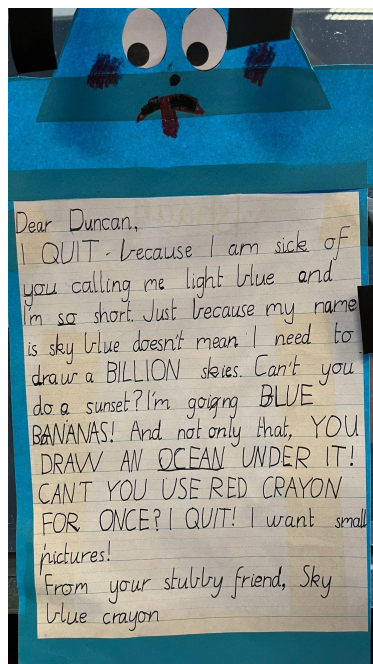 Dear Duncan,
I QUIT - because I am sick of
you calling me light blue and
I'm so short. Just because my name
is sky blue doesn't mean I need to
draw a BILLION skies. Can't you
do a sunset? I'm goigng BLUE
BANANAS! And not only that, YOU
DRAW AN OCEAN UNDER IT!
CAN'T YOU USE RED CRAYON
FOR ONCE? I QUIT! I want small
pictures!
From your stubby friend, Sky
blue crayon